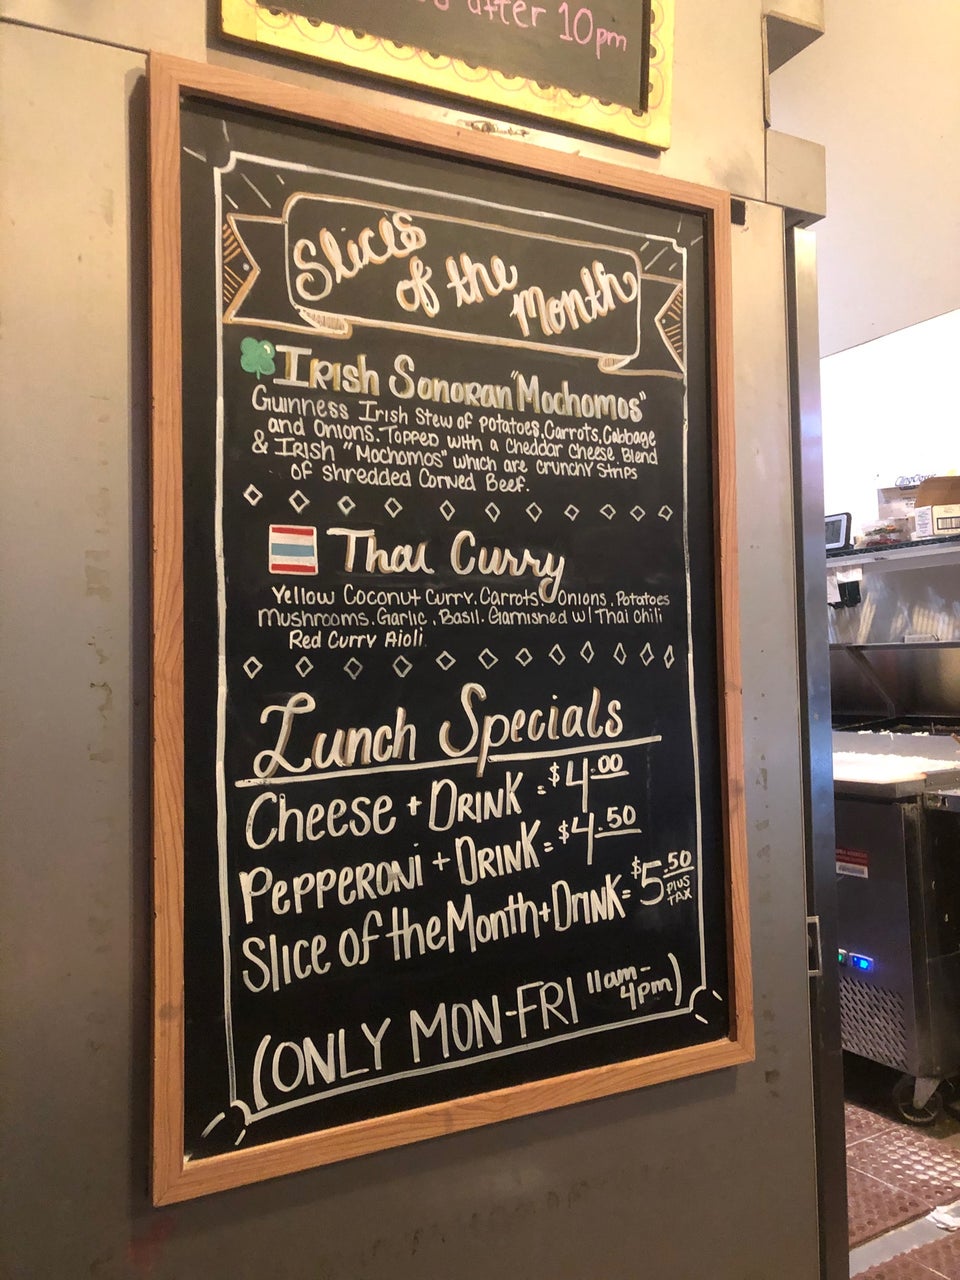 after 10pm
Slices
of the
Month
Irish Sonoran "Mochomos"
Guinness Irish Stew of potatoes, Carrots, Cabbage
and Onions. Topped with a Cheddar Cheese Blend
& Irish "Mochomos" which are crunchy strips
of shredded Corned Beef.
Thai Curry
Yellow Coconut Curry. Carrots. Onions. Potatoes
Mushrooms. Garlic, Basil. Garnished w/ Thai chili
Red Curry Aioli
Lunch Specials
Cheese + Drink = $4.00
Pepperoni + Drink = $4.50
Slice of the Month + Drink = $5.50
plus
tax
(ONLY MON-FRI 11am-
4pm)